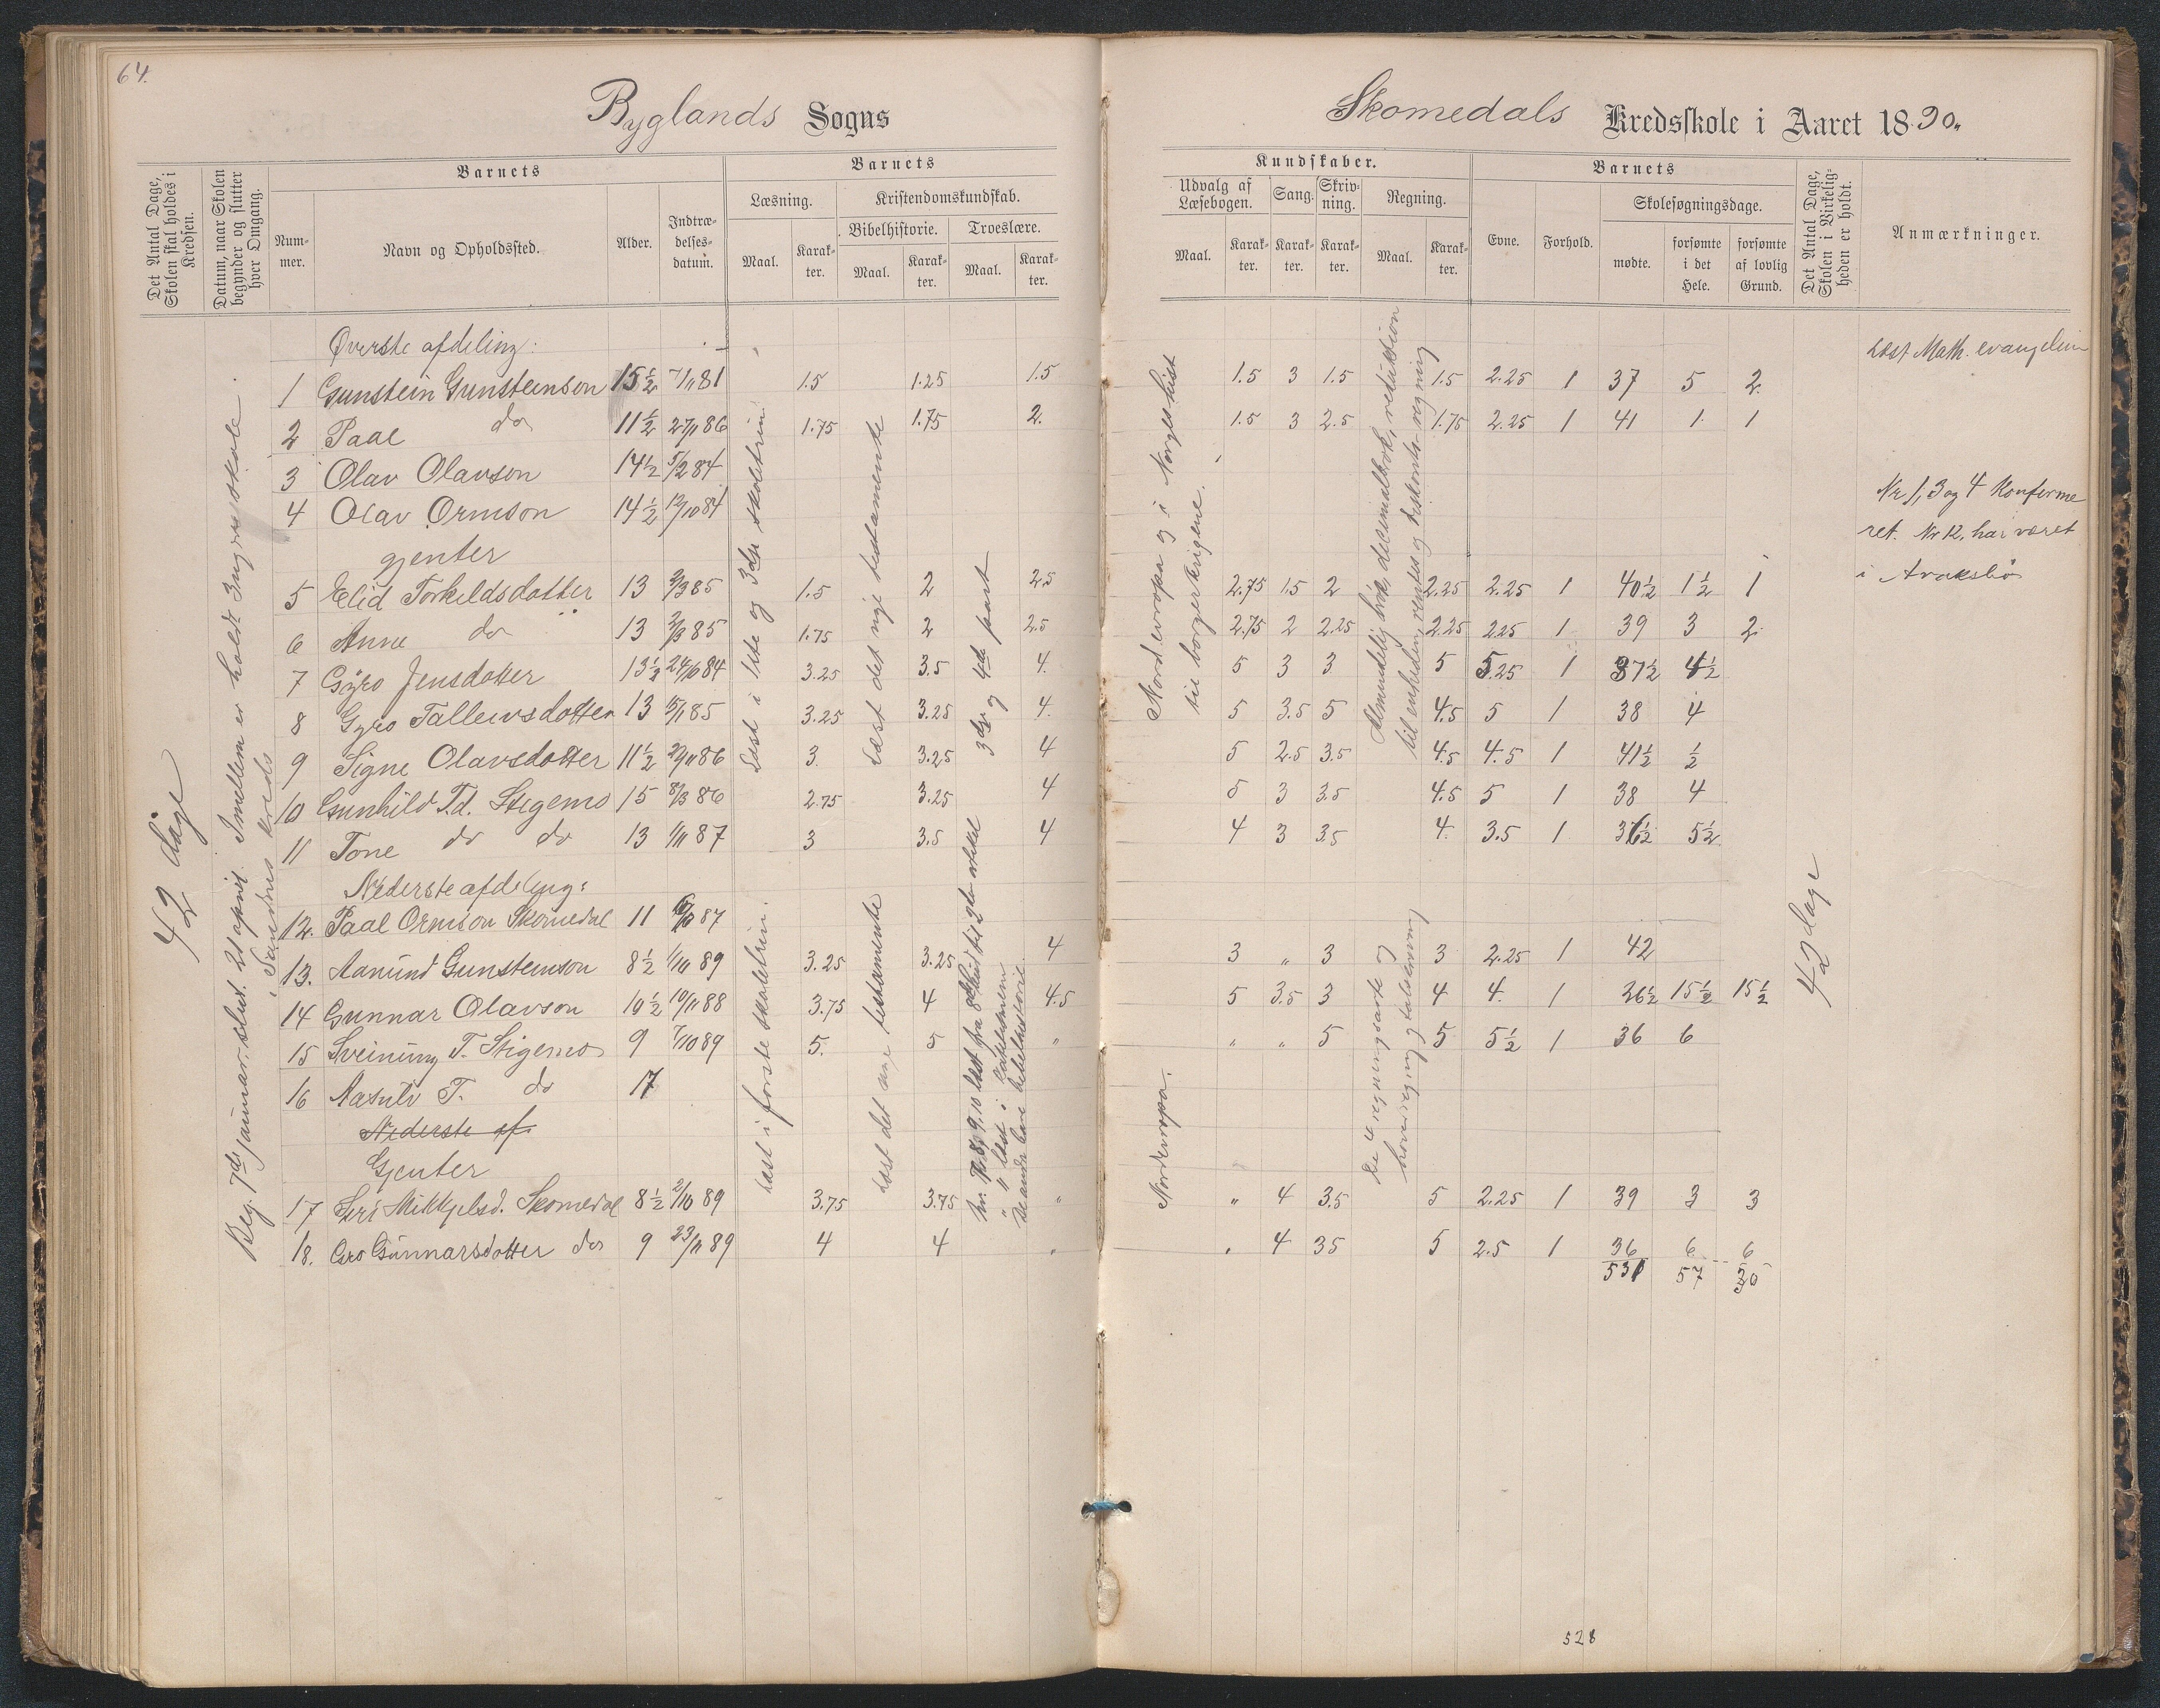 64.
Byglands Sogns
Det Antal Dage, Skolen skal holdes i Kredsen.
Datum, naar Skolen begynder og slutter hver Omgang.
Barnets
Num-mer.
Navn og Opholdssted.
Alder.
Indtræ-delses-datum.
Barnets
Læsning.
Maal.
Karak-ter.
Kristendomskundskab.
Bibelhistorie.
Maal.
Karak-ter.
Troeslære.
Maal.
Karak-ter.
42 dage
Beg. 7de januar. slut. 21 april. Imellem er holdt 3 ugers skole
i Sandnes kreds
Øverste afdeling:
1 Gunstein Gunsteinson 15½ 7/11 81 1.5 1.25 1.5
2 Paal do 11½ 27/11 86 1.75 1.75 2.
3 Olav Olavson 14½ 5/2 84
4 Olav Ormson 14½ 13/10 84
gjenter
5 Elid Torkeldsdotter 13 3/3 85 1.5 2 2.5
6 Anne do 13 3/3 85 1.75 2 2.5
7 Gyro Jensdotter 13½ 24/10 84 3.25 3.5 4.
8 Gyro Tallevsdotter 13 5/1 85 3.25 3.25 4.
9 Signe Olavsdotter 11½ 29/11 86 3. 3.25 4
10 Gunhild T.d. Stigemo 15 8/3 86 2.75 3.25 4
11 Tone do do 13 1/11 87 3 3.5 4
Nederste afdeling:
12. Paal Ormson Skomedal 11 87
13. Aamund Gunsteinson 8½ 1/10 89 3.25 3.25 4
14 Gunnar Olavson 10½ 10/11 88 3.75 4 4.5
15 Sveinung T. Stigemo 9 7/10 89 5. 5 "
16 Aasulv T. do 17
Nederste af.
Gjenter
17 Siri Mikkjelsd. Skomedal 8½ 2/10 89 3.75 3.75 "
18. Gro Gunnarsdotter do 9 23/11 89 4 4 "
Læst i 1ste og 3die skoletrin
Læst det nye testamente
3die og 4de part
Læst i første skoletrin.
Læst det nye testamente
Skomedals Kredsskole i Aaret 1890.
Kundskaber.
Udvalg af Læsebogen.
Maal.
Karak-ter.
Sang.
Karak-ter.
Skriv-ning.
Karak-ter.
Regning.
Maal.
Karak-ter.
Barnets
Evne.
Forhold.
Skolesøgningsdage.
mødte.
forsømte i det Hele.
forsømte af lovlig Grund.
Det Antal Dage, Skolen i Virkelig-heden er holdt.
Anmærkninger.
Nordevropa og i Norges hist
til borgerkrigene.
Almindelig brøk, decimalbrøk, reduktion
til enheden, rentes og diskonto-regning
1.5 3 1.5 1.5 2.25 1 37 5 2.
1.5 3 2.5 1.75 2.25 1 41 1 1
2.75 1.5 2 2.25 2.25 1 40½ 1½ 1
2.75 2 2.25 2.25 2.25 1 39 3 2.
5 3 3 5 5.25 1 37½ 4½
5 3.5 5 4.5 5 1 38 4
5 2.5 3.5 4.5 4.5 1 41½ ½
5 3 3.5 4.5 5 1 38 4
4 3 3.5 4. 3.5 1 36½ 5½
Nordevropa.
De 4 regningsarter og
hoveregning og talskrivning
3 " 3 3 2.25 1 42
5 3.5 3 4 4. 1 26½ 15½ 15½
" " 5 5 5½ 1 36 6
" 4 3.5 5 2.25 1 39 3 3
" 4 35 5 2.5 1 36 6 6
531 57 30
42 dage
Læst Math. evangelium
Nr 1, 3 og 4 Konfirme
ret. Nr 12, har været
i Araksbø
528